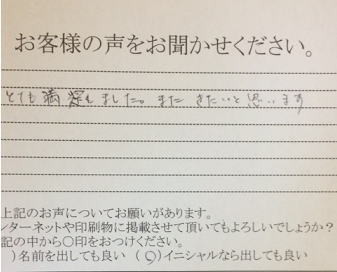 お客様の声をお聞かせください。
とても満喫しました。また きたいと思います
上記のお声についてお願いがあります。
ンターネットや印刷物に掲載させて頂いてもよろしいでしょうか?
記の中から○印をおつけください。
)名前を出しても良い (○)イニシャルなら出しても良い